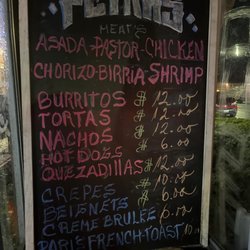 MEATS
ASADA-PASTOR-CHICKEN
CHORIZO-BIRRIA-SHRIMP
BURRITOS $ 12.00
TORTAS $ 12.00
NACHOS $ 12.00
HOT DOGS $ 6.00
QUEZADILLAS $ 12.00
CREPES $ 10.00
BEIGNETS
CREME BRULEE
FRENCH-TOAST